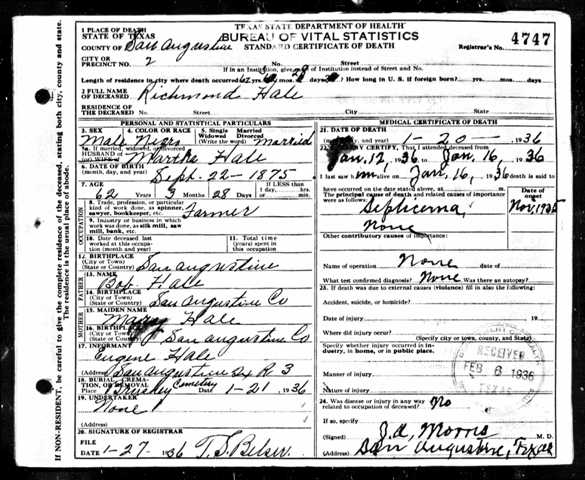 TEXAS STATE DEPARTMENT OF HEALTH
BUREAU OF VITAL STATISTICS
STANDARD CERTIFICATE OF DEATH
Registrar's No. 4747
1 PLACE OF DEATH
STATE OF TEXAS
COUNTY OF San Augustine
CITY OR PRECINCT NO. 2 Street
If in an Institution, give name of Institution instead of Street and No.
Length of residence in city where death occurred yrs. mos. days. How long in U. S. if foreign born? yrs. mos. days.
2 FULL NAME OF DECEASED Richmond Hale
RESIDENCE OF THE DECEASED No. Street City State
PERSONAL AND STATISTICAL PARTICULARS
3. SEX 4. COLOR OR RACE 5. Single Married Widowed Divorced (Write the word)
Male Negro Married
5a. If married, widowed, or divorced
HUSBAND OF (or) WIFE of Martha Hale
6. DATE OF BIRTH
(month, day, and year) Sept. 22-1875
7. AGE If LESS than 1 day
62 Years 3 Months 28 Days hrs. min.
OCCUPATION
8. Trade, profession, or particular kind of work done, as spinner, sawyer, bookkeeper, etc. Farmer
9. Industry or business in which work was done, as silk mill, saw mill, bank, etc.
10. Date deceased last worked at this occupation (month and year)
11. Total time (years) spent in this occupation
12. BIRTHPLACE
(City or Town)
(State or Country) San Augustine
FATHER
13. NAME Bob Hale
14. BIRTHPLACE
(City or Town)
(State or Country) San Augustine Co
MOTHER
15. MAIDEN NAME Hale
16. BIRTHPLACE
(City or Town)
(State or Country) San Augustine Co
17 INFORMANT Eugene Hale
(Address) San Augustine R 3
18 BURIAL, CREMATION, OR REMOVAL
Cemetery Date 1-21 1936
19. UNDERTAKER None
(Address)
20. SIGNATURE OF REGISTRAR
FILE
DATE 1-27 1936 T.S. Belser
MEDICAL CERTIFICATE OF DEATH
21. DATE OF DEATH
1-20- 1936
22. I HEREBY CERTIFY, That I attended deceased from
Jan. 12, 1936 to Jan. 16, 1936
I last saw him alive on Jan. 16, 1936, death is said to
have occurred on the date stated above, at m.
The principal cause of death and related causes of importance were as follows: Date of onset
Septicemia Nov. 1935
None
Other contributory causes of importance:
Name of operation None date of
What test confirmed diagnosis? None Was there an autopsy?
23. If death was due to external causes (violence) fill in also the following:
Accident, suicide, or homicide?
Date of injury 19
Where did injury occur?
(Specify city or town, county, and State)
Specify whether injury occurred in industry, in home, or in public place.
Manner of injury
Nature of injury
RECEIVED
FEB 6 1936
TEXAS
24. Was disease or injury in any way related to occupation of deceased? No
If so, specify
(Signed) J.A. Morris M. D.
San Augustine, Texas